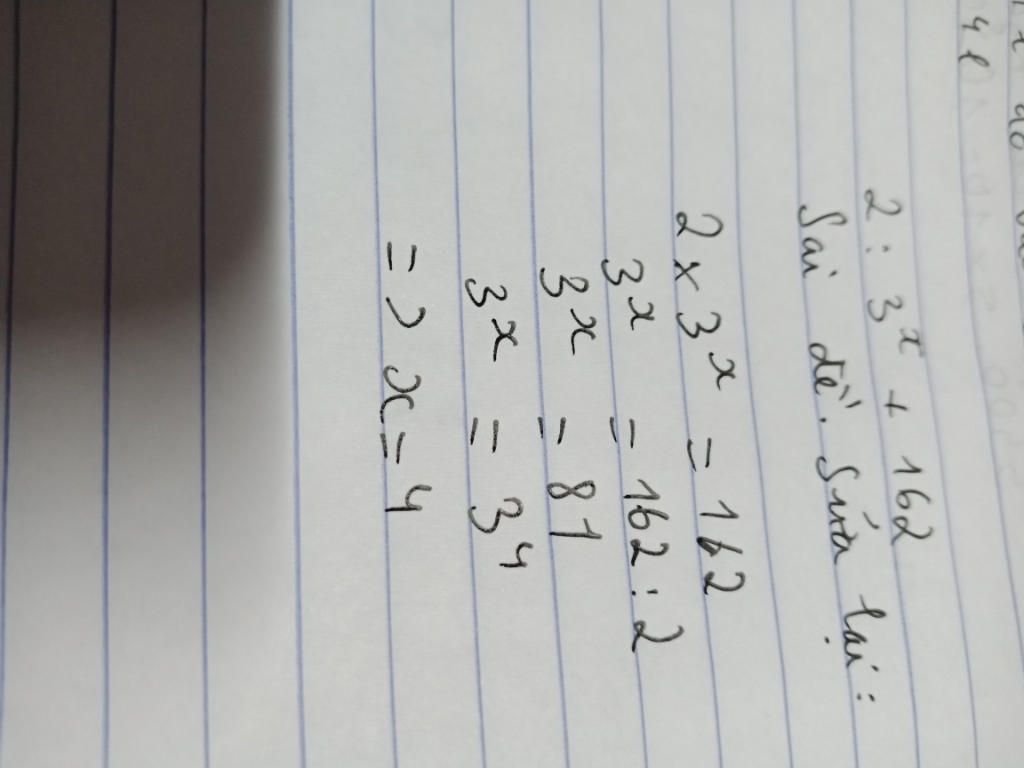 2 : 3ˣ + 162
Sai đề. Sửa lại :
2 × 3ˣ = 162
3ˣ = 162 : 2
3ˣ = 81
3ˣ = 3⁴
=> x = 4